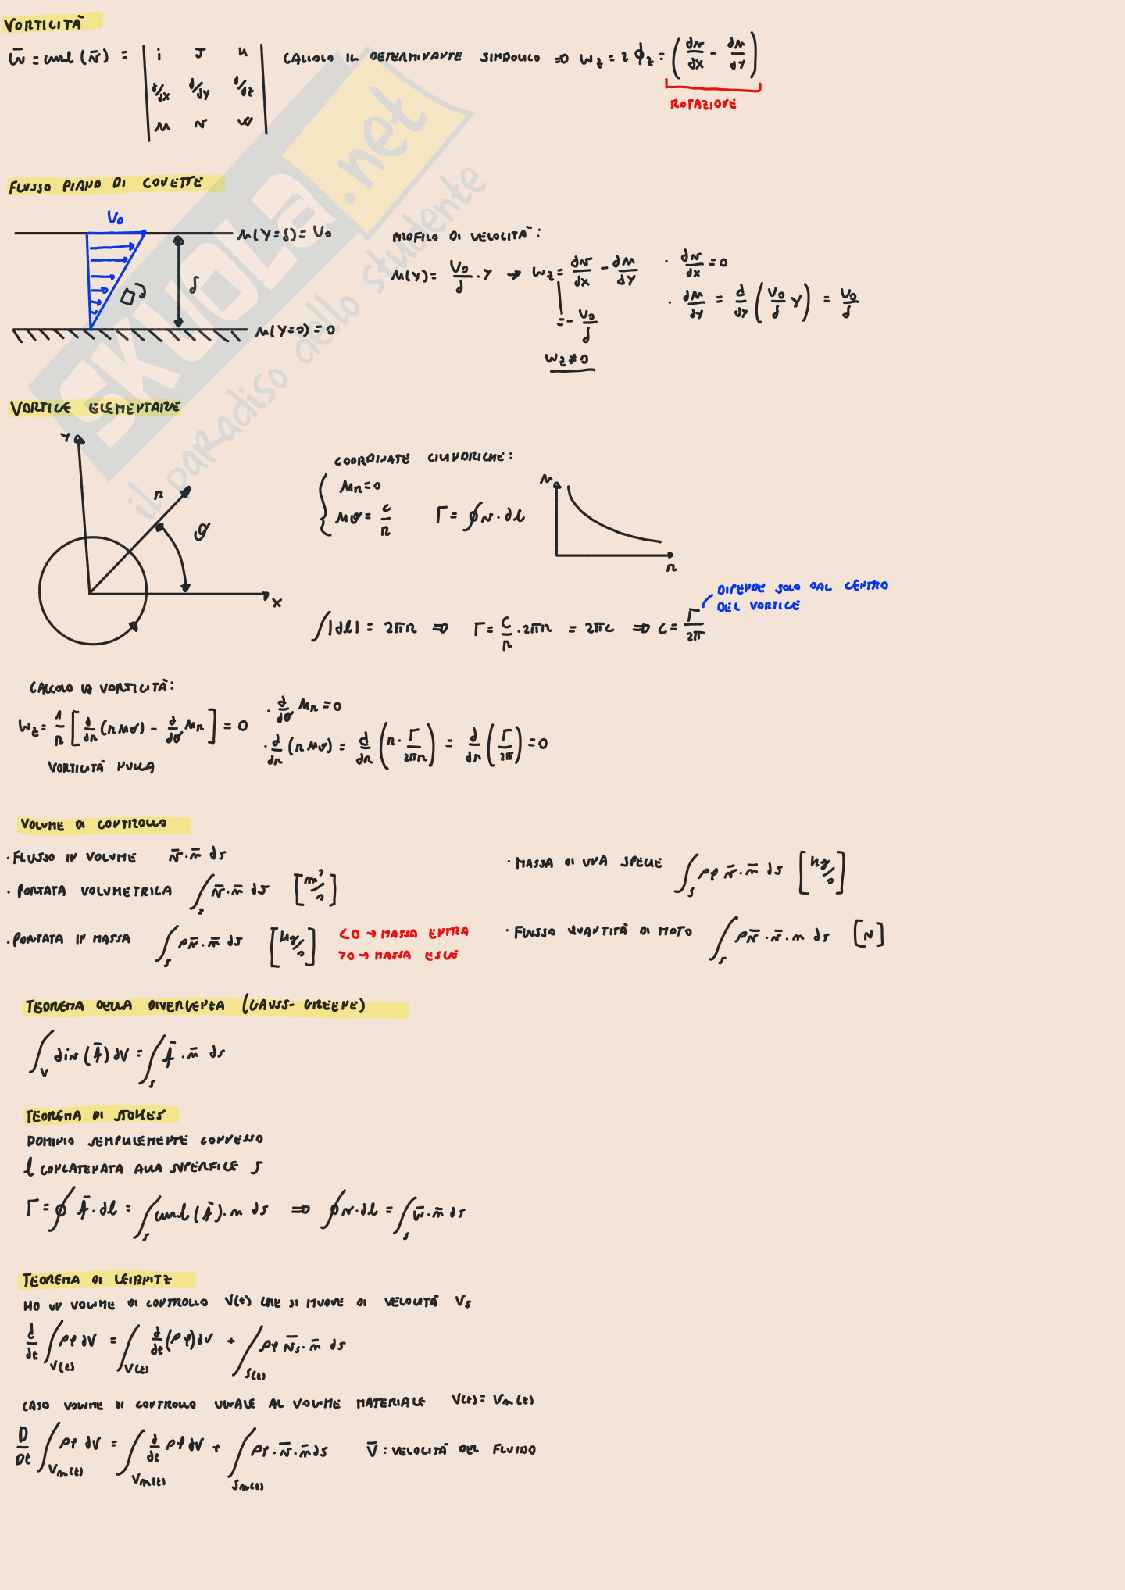 VORTICITÀ
w̄ = curl (v̄) = | i j k | d/dx d/dy d/dz | u v w | CALCOLO IL DETERMINANTE SIMBOLICO ⇒ Wz = 2 ϕ̇z = (dv/dx - du/dy)
ROTAZIONE
FLUSSO PIANO DI COUETTE
V0
u(y=δ) = V0
δ
u(y=0) = 0
PROFILO DI VELOCITÀ:
u(y) = V0/δ · y → Wz = dv/dx - du/dy · dv/dx = 0
= - V0/δ · du/dy = d/dy (V0/δ y) = V0/δ
Wz ≠ 0
VORTICE ELEMENTARE
y
r
θ
x
COORDINATE CILINDRICHE:
ur = 0
uθ = c/r Γ = ∮ v · dl
v
r
∫|dl| = 2πr ⇒ Γ = c/r · 2πr = 2πc ⇒ c = Γ/2π
DIPENDE SOLO DAL CENTRO
DEL VORTICE
CALCOLO LA VORTICITÀ:
Wz = 1/r [d/dr (r uθ) - d/dθ ur] = 0 · d/dθ ur = 0
· d/dr (r uθ) = d/dr (r · Γ/2πr) = d/dr (Γ/2π) = 0
VORTICITÀ NULLA
VOLUME DI CONTROLLO
· FLUSSO IN VOLUME v̄ · n̄ ds
· PORTATA VOLUMETRICA ∫s v̄ · n̄ ds [m³/s]
· PORTATA IN MASSA ∫s ρv̄ · n̄ ds [kg/s]
<0 → MASSA ENTRA
>0 → MASSA ESCE
· MASSA DI UNA SPECIE ∫s ρφ v̄ · n̄ ds [kg/s]
· FLUSSO QUANTITÀ DI MOTO ∫s ρv̄ · v̄ · n ds [N]
TEOREMA DELLA DIVERGENZA (GAUSS-GREENE)
∫v div (f̄) dV = ∫s f̄ · n̄ ds
TEOREMA DI STOKES
DOMINIO SEMPLICEMENTE CONNESSO
l CONCATENATA ALLA SUPERFICE S
Γ = ∮ f̄ · dl = ∫s curl (f̄) · n ds ⇒ ∮ v · dl = ∫s w̄ · n̄ ds
TEOREMA DI LEIBNITZ
HO UN VOLUME DI CONTROLLO V(t) CHE SI MUOVE DI VELOCITÀ Vs
d/dt ∫V(t) ρφ dV = ∫V(t) d/dt (ρφ) dV + ∫S(t) ρφ v̄s · n̄ ds
CASO VOLUME DI CONTROLLO UGUALE AL VOLUME MATERIALE V(t) = Vm(t)
D/Dt ∫Vm(t) ρφ dV = ∫Vm(t) d/dt ρφ dV + ∫Sm(t) ρφ · v̄ · n̄ ds V̄: VELOCITÀ DEL FLUIDO
SKUOLA.net
il paradiso dello studente